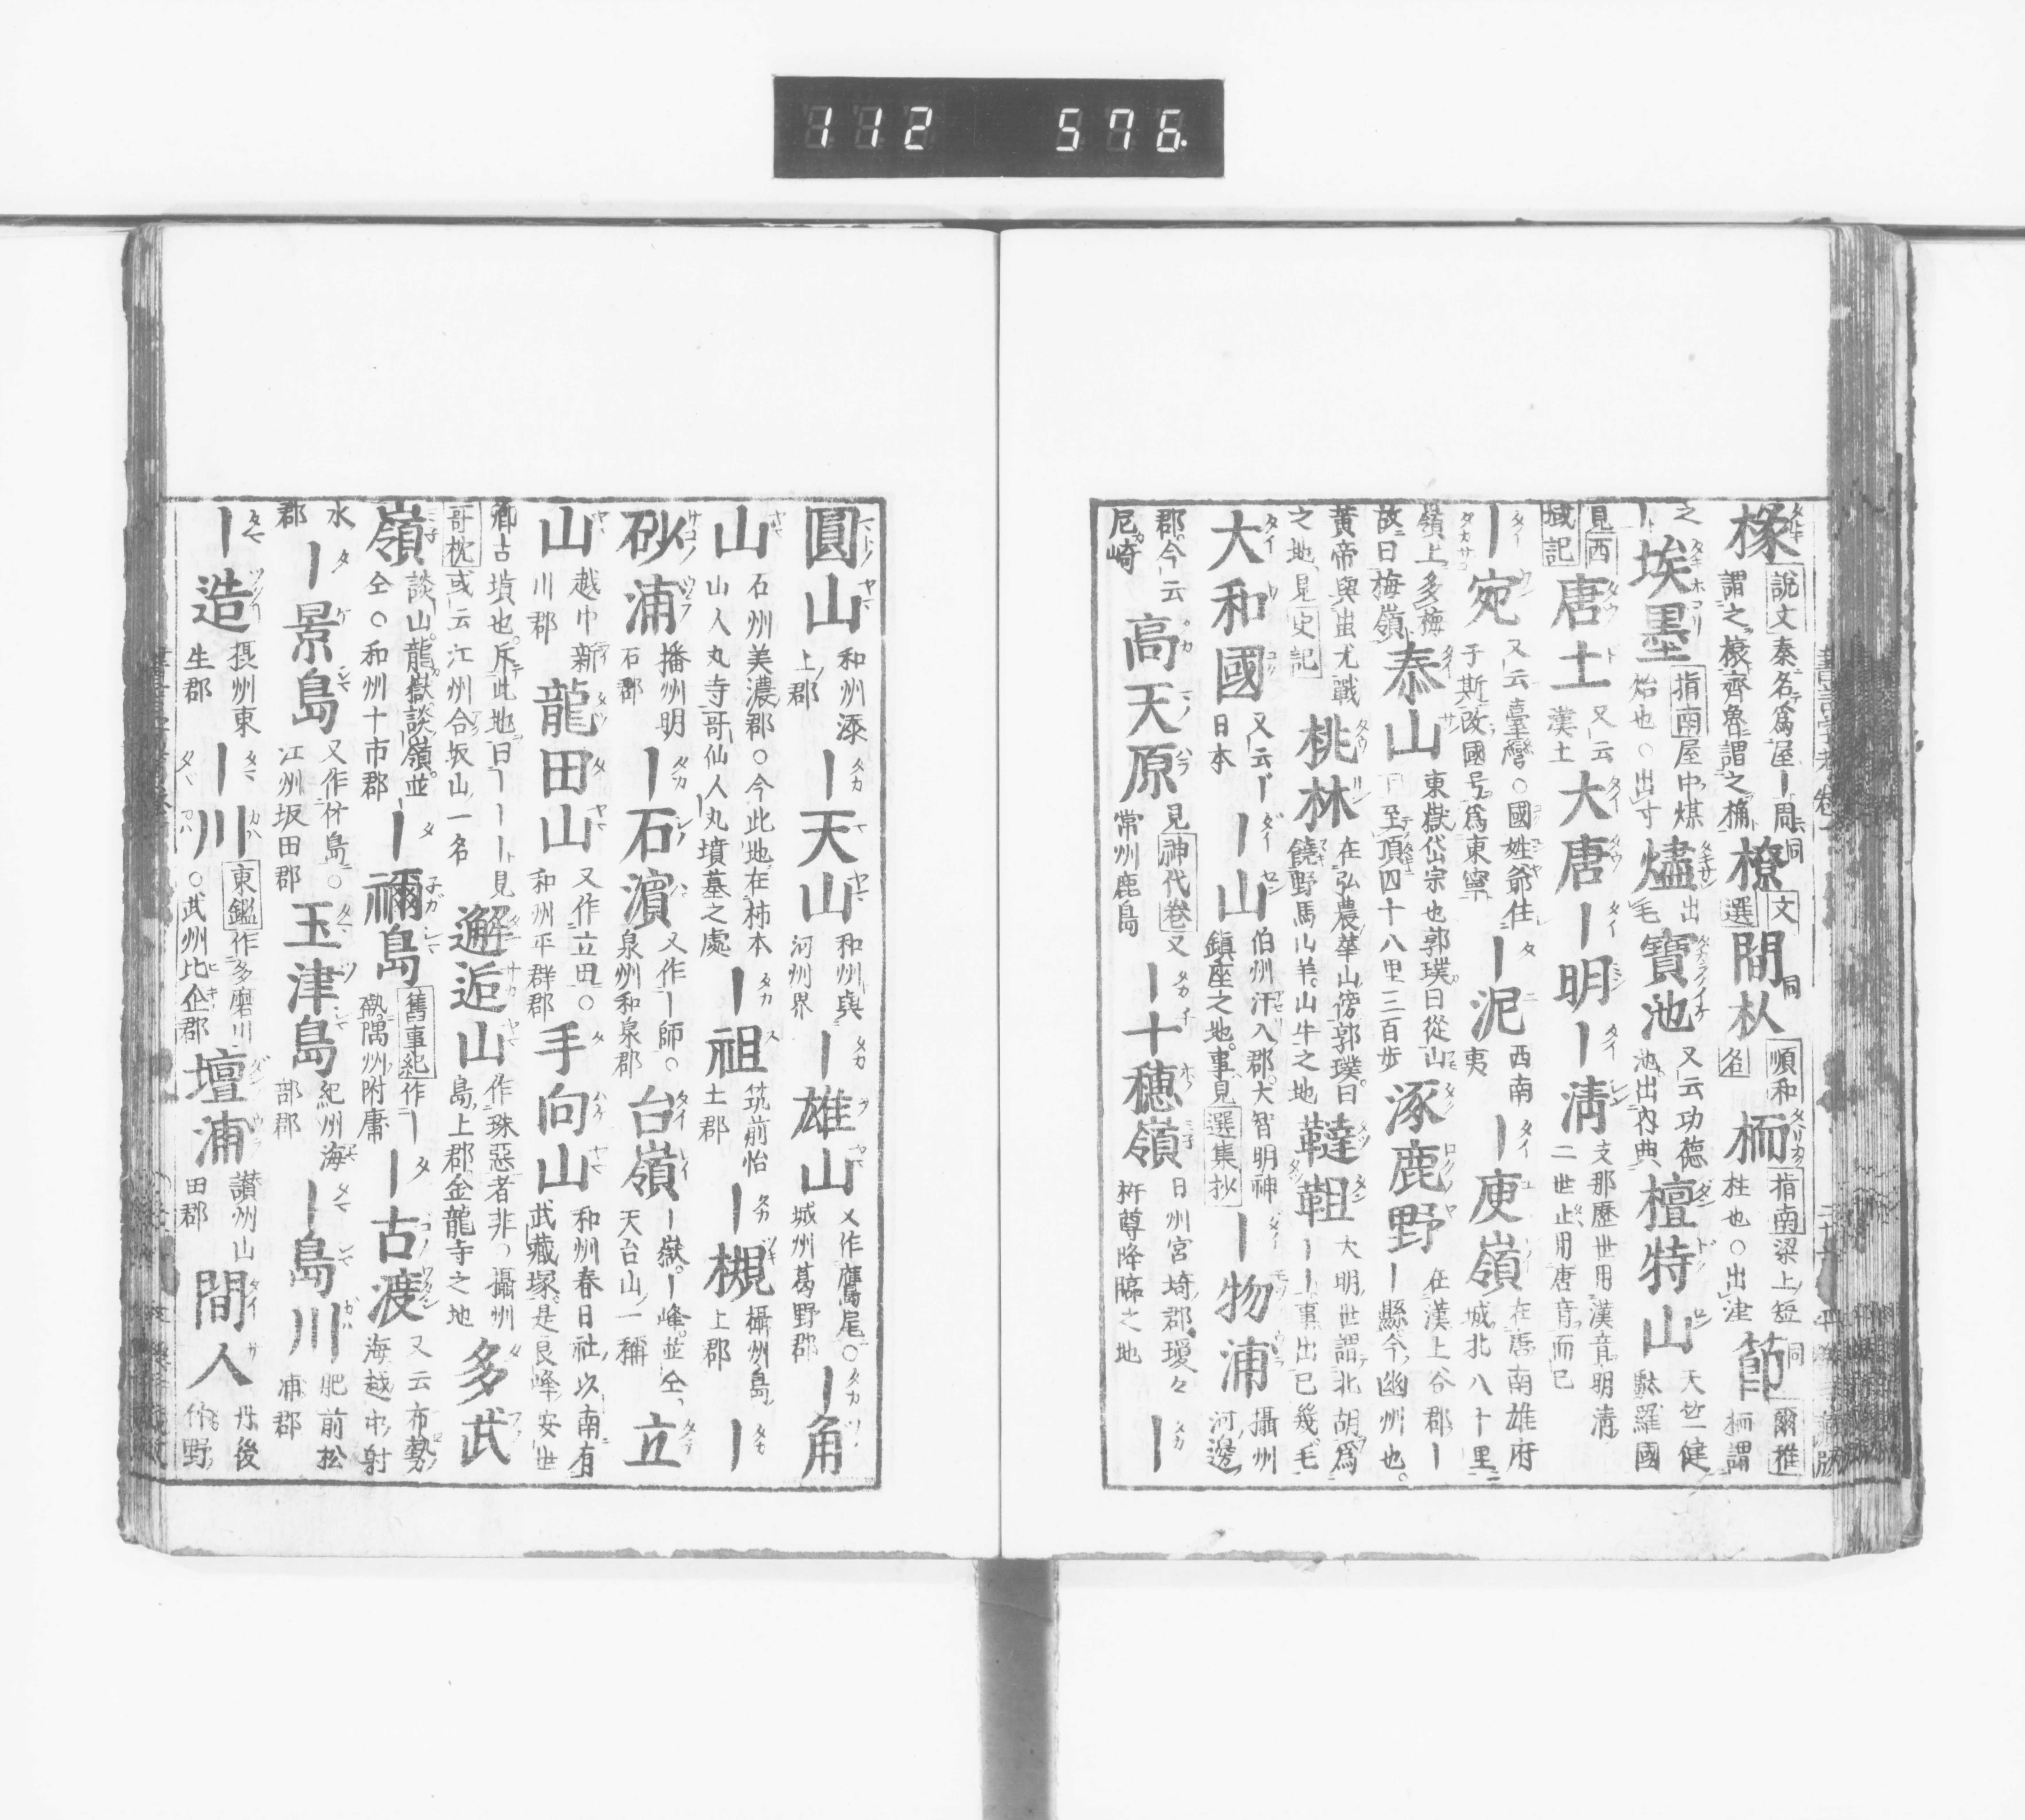 112 576.
椽 説文秦名爲屋ー周謂之榱齊魯謂之桷 橑 同文選 間 同 杁 順和名 栭 指南梁上短柱也○出津 節 同爾雅栭謂
之 ー埃墨 指南屋中煤炲也○出寸 燼 出毛 寶池 又云功德池出内典 檀特山 天竺健馱羅國
見西域記 唐土 又云漢土 大唐 ー明 ー清 支那歷世用漢音明清二世止用唐音而已
ー宛 又云臺灣○國姓爺住于斯改國号爲東寧 ー泥 西南夷 ー庾嶺 在唐南雄府城北八十里
嶺上多梅故曰梅嶺 泰山 東嶽岱宗也郭璞曰從山下至頂四十八里三百步 涿鹿野 在漢上谷郡ー縣今幽州也
黄帝與蚩尤戰之地見史記 桃林 在弘農華山傍郭璞曰饒野馬山羊山牛之地 韃靼 大明世謂北胡爲ーー事出已幾毛
大和國 又云ー日本 ー山 伯州汗入郡大智明神鎮座之地事見選集抄 ー物浦 攝州河邊
郡今云尼崎 高天原 見神代卷又常州鹿島 ー十穗嶺 日州宮埼郡瓊々杵尊降臨之地 ー
圓山 和州添上郡 ー天山 和州與河州界 ー雄山 又作鷹尾○城州葛野郡 ー角
山 石州美濃郡○今此地在柿本山人丸寺哥仙人丸墳墓之處 ー祖 筑前怡土郡 ー槻 攝州島上郡 ー
砂浦 播州明石郡 ー石濱 又作ー師○泉州和泉郡 台嶺 ー嶽ー峰並仝天台山一稱 立
山 越中新川郡 龍田山 又作立田○和州平群郡 手向山 和州春日社以南有武藏塚是良峰安世
卿古墳也斥此地曰ーーー見哥枕或云江州合坂山一名 邂逅山 作珠惡者非○攝州島上郡金龍寺之地 多武
嶺 談山龍嶽談嶺並仝○和州十市郡 ー禰島 舊事紀作ー㙯隅州附庸 ー古渡 又云布勢海越中射
水郡 ー景島 又作竹島○江州坂田郡 玉津島 紀州海部郡 ー島川 肥前松浦郡
ー造 摂州東生郡 ー川 東鑑作多磨川○武州比企郡 壇浦 讃州山田郡 間人 丹後竹野